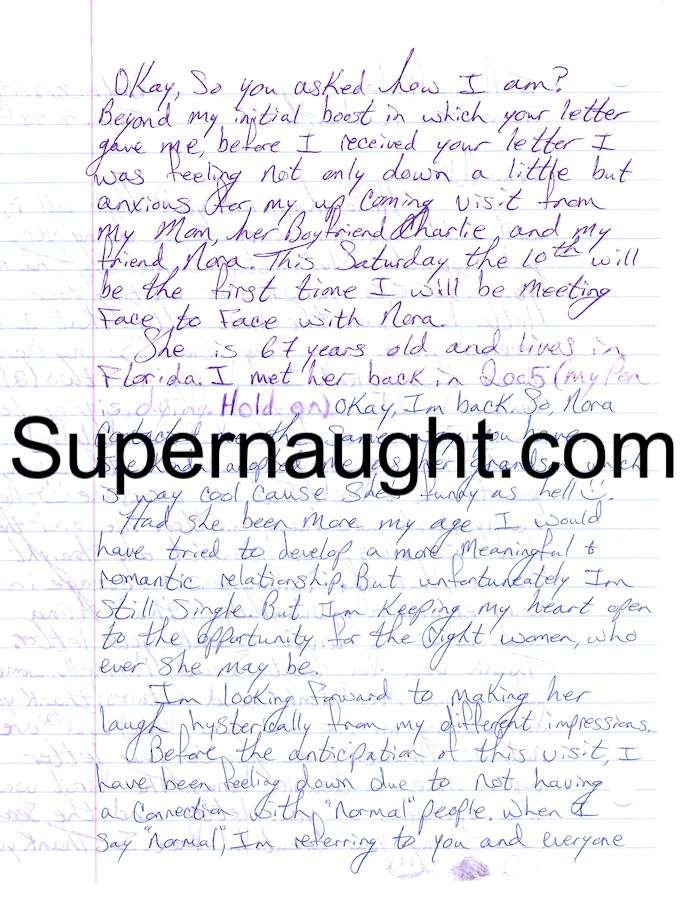 Okay, So you asked how I am?
Beyond my initial boost in which your letter
gave me, before I received your letter I
was feeling not only down a little but
anxious for my up coming visit from
my Mom, her Boyfriend Charlie and my
friend Nora. This Saturday the 10th will
be the first time I will be meeting
Face to Face with Nora.
She is 67 years old and lives in
Florida. I met her back in 2005 (my Pen
is dying Hold on) Okay, Im back. So, Nora
Supernaught.com
is way cool cause she's funny as hell☺.
Had she been more my age I would
have tried to develop a more meaningful +
romantic relationship. But unfortunately Im
still single. But Im Keeping my heart open
to the opportunity for the right women, who
ever she may be.
Im looking forward to making her
laugh hysterically from my different impressions.
Before the anticipation of this visit, I
have been feeling down due to not having
a Connection with "normal" people. When I
say "normal", Im referring to you and everyone